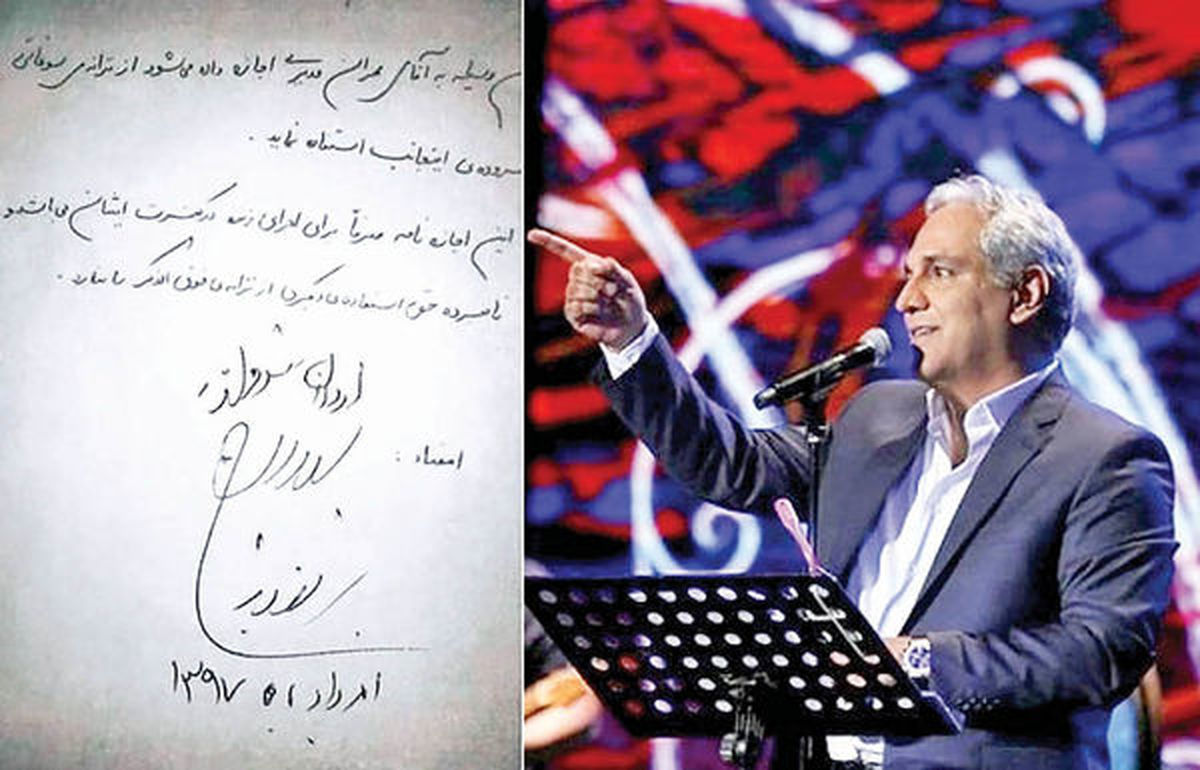 ن وسیله به آقای مهران مدیری اجازه داده می‌شود از ترانه‌ی سوغاتی
سروده‌ی اینجانب استفاده نماید.
این اجازه نامه صرفاً برای اجرای زنده در کنسرت ایشان می‌باشد و
نامبرده حق استفاده‌ی دیگری از ترانه‌ی فوق الذکر را ندارد.
اردلان سرفراز
امضاء:
اردلان
سرفراز
مرداد ماه ۱۳۹۷